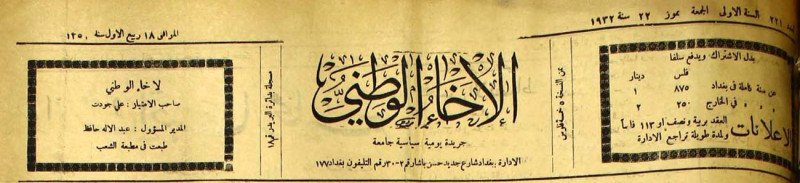 السنة الاولى الجمعة تموز ٢٢ سنة ١٩٣٢
الموافق ١٨ ربيع الاول سنة ١٣٥٠
بدل الاشتراك ويدفع سلفا
فلس دينار
عن سنة كاملة في بغداد ٨٧٥ ١
» » » في الخارج ٢٥٠ ٢
الاعلانات
العقد برية ونصف او ١١٣ فلساً
ولمدة طويلة تراجع الادارة
ثمن النسخة ٥ خمسة فلوس
الإخاء الوطني
جريدة يومية سياسية جامعة
الادارة بغداد شارع جديد حسن باشا رقم ٢-٣٠ رقم التليفون بغداد ١٧٧
مسجلة بدائرة البريد رقم ١٨
لاخاء الوطني
صاحب الامتياز : علي جودت
المدير المسؤول : عبد الاله حافظ
طبعت في مطبعة الشعب